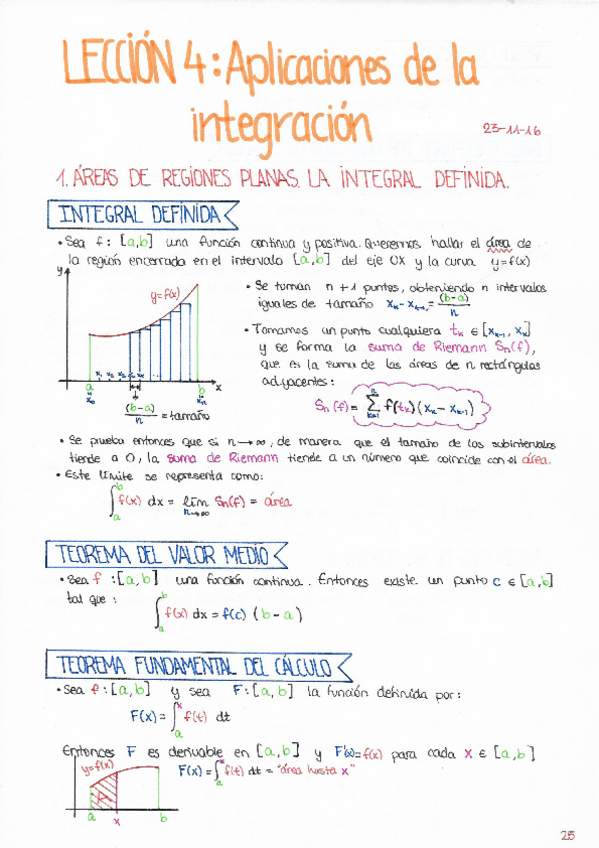 LECCIÓN 4: Aplicaciones de la
integración
23-11-16
1. ÁREAS DE REGIONES PLANAS. LA INTEGRAL DEFINIDA.
INTEGRAL DEFINIDA
• Sea f: [a,b] una función continua y positiva. Queremos hallar el área de
la región encerrada en el intervalo [a,b] del eje OX y la curva y=f(x)
y
y=f(x)
x₁ x₂ x₃ x₄ ...
a b x
x₀ xₙ
(b-a)/n = tamaño
• Se toman n+1 puntos, obteniendo n intervalos
iguales de tamaño xₖ-xₖ₋₁ = (b-a)/n
• Tomamos un punto cualquiera tₖ ∈ [xₖ₋₁, xₖ]
y se forma la suma de Riemann Sn(f),
que es la suma de las áreas de n rectángulos
adyacentes:
Sn(f) = ∑ₖ₌₁ⁿ f(tₖ)(xₖ - xₖ₋₁)
• Se prueba entonces que si n→∞, de manera que el tamaño de los subintervalos
tiende a 0, la suma de Riemann tiende a un número que coincide con el área.
• Este límite se representa como:
∫ₐᵇ f(x) dx = lím n→∞ Sn(f) = área
TEOREMA DEL VALOR MEDIO
• Sea f: [a,b] una función continua. Entonces existe un punto c ∈ [a,b]
tal que:
∫ₐᵇ f(x) dx = f(c) (b-a)
TEOREMA FUNDAMENTAL DEL CÁLCULO
• Sea f: [a,b] y sea F: [a,b] la función definida por:
F(x) = ∫ₐˣ f(t) dt
Entonces F es derivable en [a,b] y F'(x)=f(x) para cada x ∈ [a,b]
y=f(x)
F(x) = ∫ₐˣ f(t) dt = "área hasta x"
a x b
25